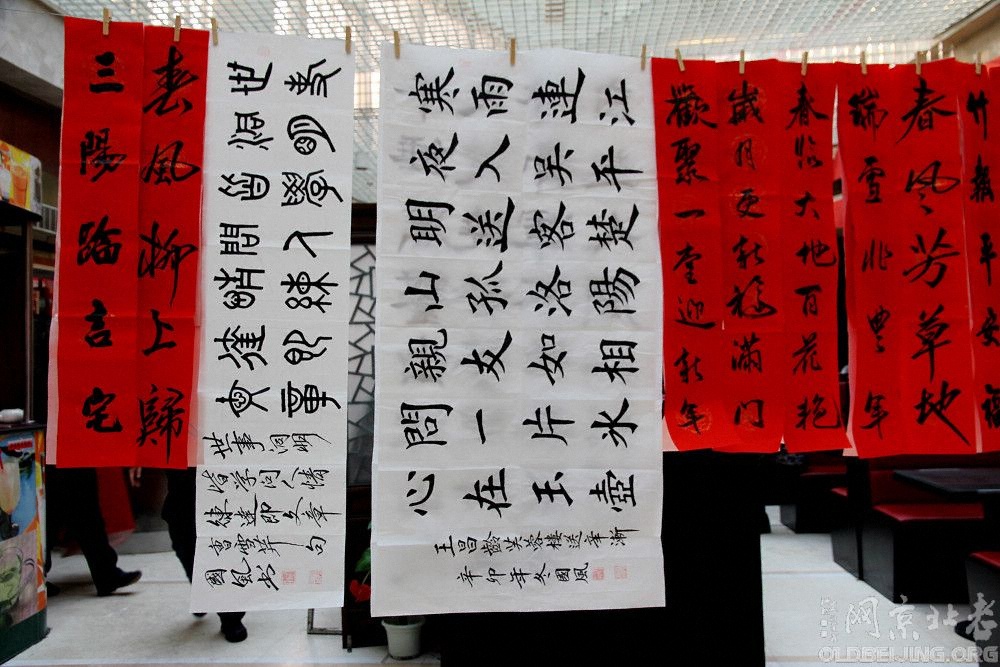 春風柳上歸
三陽臨吉宅
世事
洞明
皆學
問人
情練
達即
文章
世事洞明
皆學問人情
練達即文章
曹雪芹句
國風书
寒雨連江
夜入吳平
明送客楚
山孤洛陽
親友如相
問一片氷
心在玉壺
王昌齡芙蓉樓送辛漸
辛卯年冬國風
竹報平安福
春风芳草地
瑞雪兆豊年
春临大地百花艳
歲月更新福滿门
歡聚一堂迎新年
网京北老
OLDBEIJING.ORG